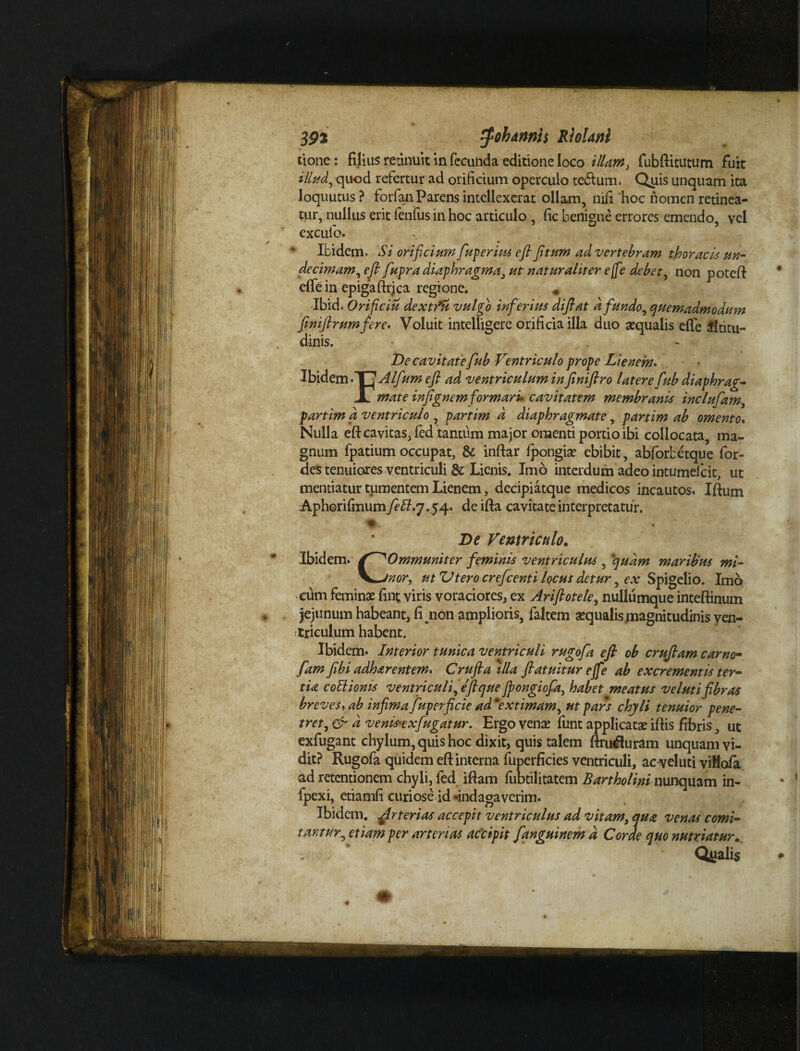 392 Johannis Riolani
tione : filius retinuit in secunda editione loco illam, substitutum fuit
illud, quod refertur ad orificium operculo tectum. Quis unquam ita
loquutus ? forsan Parens intellexerat ollam, nisi hoc nomen retinea-
tur, nullus erit sensus in hoc articulo , sic benignè errores emendo, vel
excuso.
Ibidem. Si orificium superius est situm ad vertebram thoracis un-
decimam, est supra diaphragma, ut naturaliter esse debet, non potest
esse in epigastrica regione.
Ibid. Orificiū dextrū vulgò inferius distat à fundo, quemadmodum
sinistrum fere. Voluit intelligere orificia illa duo æqualis esse altitu-
dinis.
De cavitate sub Ventriculo prope Lienem.
Ibidem. FAlsum est ad ventriculum in sinistro latere sub diaphrag-
mate insignem formari cavitatem membranis inclusam,
partim à ventriculo , partim à diaphragmate , partim ab omento.
Nulla est cavitas, sed tantùm major omenti portio ibi collocata, ma-
gnum spatium occupat, & instar spongiæ ebibit, absorbétque sor-
des tenuiores ventriculi & Lienis. Imò interdum adeo intumescit, ut
mentiatur tumentem Lienem, decipiátque medicos incautos. Istum
Aphorismum sect.7.54. de ista cavitate interpretatur.
De Ventriculo.
Ibidem. COmmuniter feminis ventriculus , quàm maribus mi-
nor, ut Utero crescenti locus detur , ex Spigelio. Imò
cùm feminæ sint viris voraciores, ex Aristotele, nullúmque intestinum
jejunum habeant, si non amplioris, saltem æqualis magnitudinis ven-
triculum habent.
Ibidem. Interior tunica ventriculi rugosa est ob crustam carno-
sam sibi adhærentem. Crusta illa statuitur esse ab excrementis ter-
tiæ coctionis ventriculi, éstque spongiosa, habet meatus veluti fibras
breves, ab infima superficie ad extimam, ut pars chyli tenuior pene-
tret, & à venis exsugatur. Ergo venæ sunt applicatæ istis fibris, ut
exsugant chylum, quis hoc dixit, quis talem structuram unquam vi-
dit? Rugosa quidem est interna superficies ventriculi, ac veluti villosa
ad retentionem chyli, sed istam subtilitatem Bartholini nunquam in-
spexi, etiamsi curiosè id indagaverim.
Ibidem. Arterias accepit ventriculus ad vitam, quæ venas comi-
tantur, etiam per arterias accipit sanguinem à Corde quo nutriatur.
Qualis